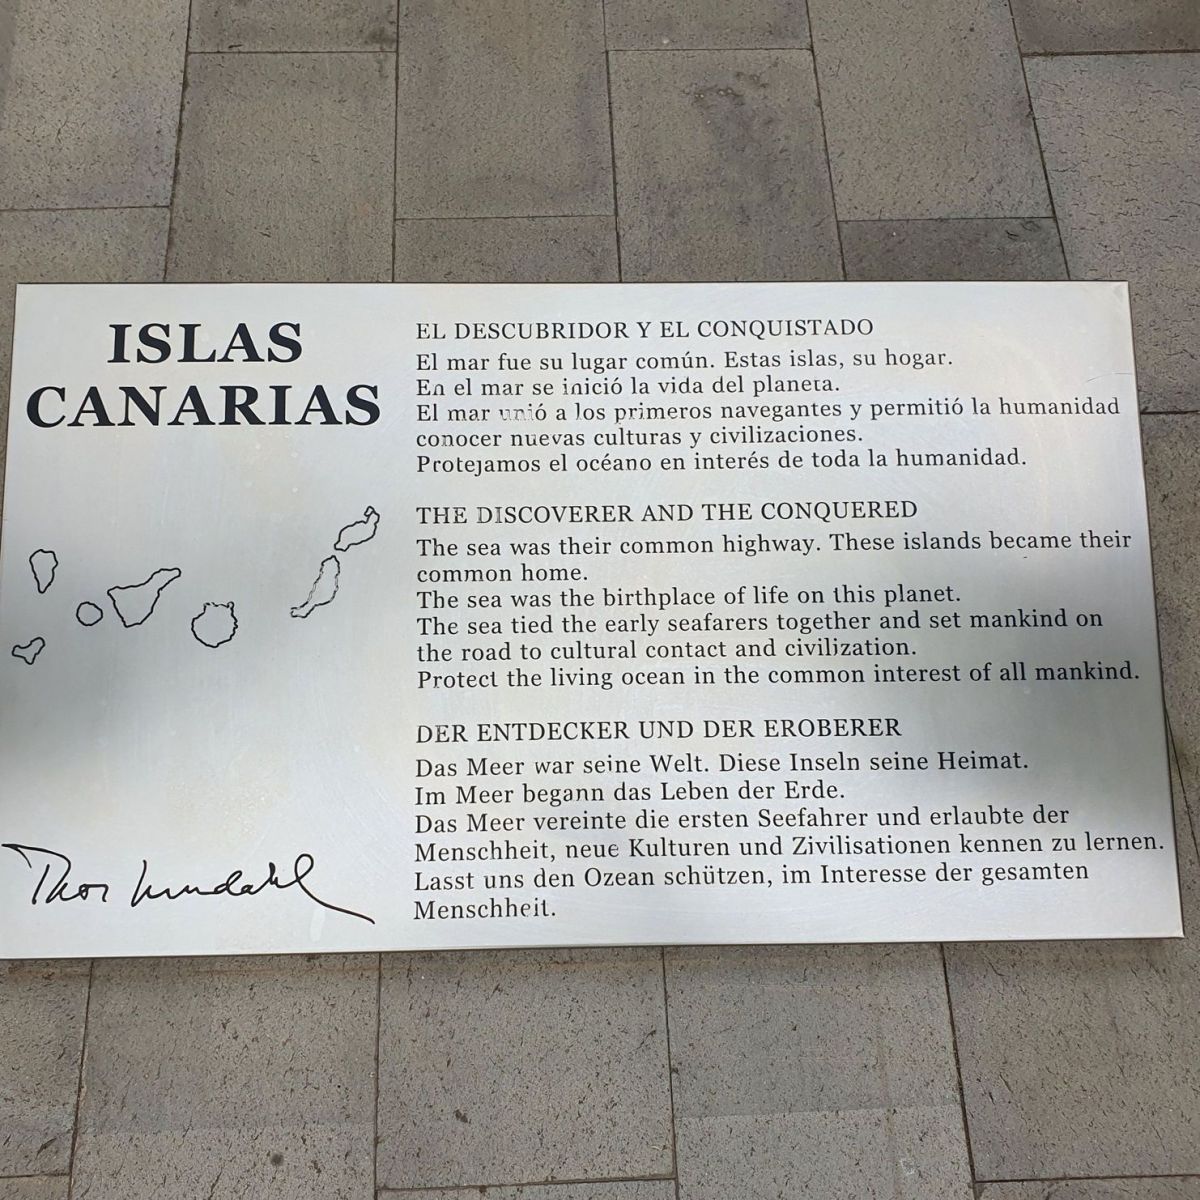 ISLAS
CANARIAS
EL DESCUBRIDOR Y EL CONQUISTADO
El mar fue su lugar común. Estas islas, su hogar.
En el mar se inició la vida del planeta.
El mar unió a los primeros navegantes y permitió la humanidad
conocer nuevas culturas y civilizaciones.
Protejamos el océano en interés de toda la humanidad.
THE DISCOVERER AND THE CONQUERED
The sea was their common highway. These islands became their
common home.
The sea was the birthplace of life on this planet.
The sea tied the early seafarers together and set mankind on
the road to cultural contact and civilization.
Protect the living ocean in the common interest of all mankind.
DER ENTDECKER UND DER EROBERER
Das Meer war seine Welt. Diese Inseln seine Heimat.
Im Meer begann das Leben der Erde.
Das Meer vereinte die ersten Seefahrer und erlaubte der
Menschheit, neue Kulturen und Zivilisationen kennen zu lernen.
Lasst uns den Ozean schützen, im Interesse der gesamten
Menschheit.
Thor